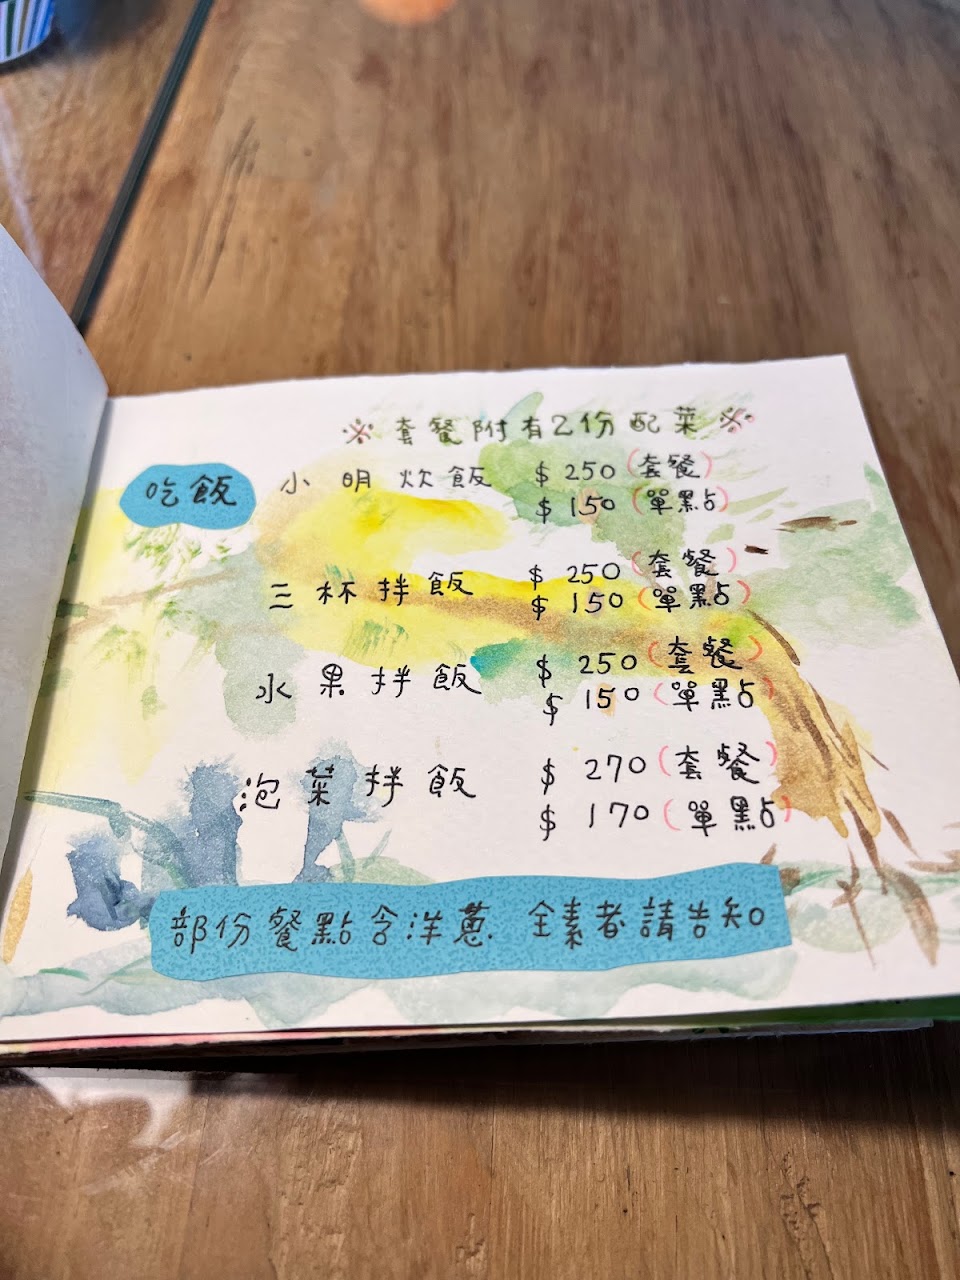 ※ 套餐附有2份配菜 ※
吃飯
小明炊飯 $250(套餐)
$150(單點)
三杯拌飯 $250(套餐)
$150(單點)
水果拌飯 $250(套餐)
$150(單點)
泡菜拌飯 $270(套餐)
$170(單點)
部份餐點含洋蔥 全素者請告知